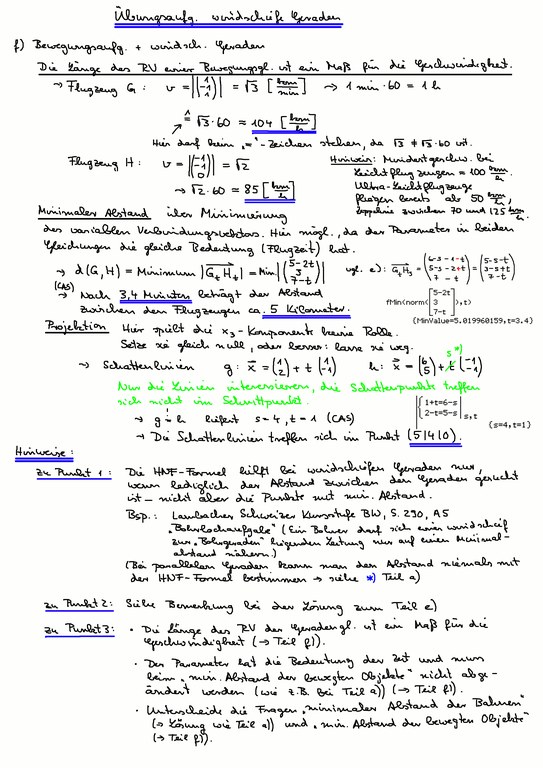 Übungsaufg. windschiefe Geraden
f) Bewegungsaufg. + windsch. Geraden
Die Länge des RV einer Bewegungsgl. ist ein Maß für die Geschwindigkeit.
→ Flugzeug G: v = |(1 -1 -1)| = √3 [km/min] → 1 min · 60 = 1 h
≙ √3 · 60 ≈ 104 [km/h]
Hier darf kein "="-Zeichen stehen, da √3 ≠ √3·60 ist.
Flugzeug H: v = |(-1 -1 0)| = √2
→ √2 · 60 ≈ 85 [km/h]
Hinweis: Mindestgeschw. bei
Leichtflugzeugen ≈ 100 km/h.
Ultra-Leichtflugzeuge
fliegen bereits ab 50 km/h,
zwischen 70 und 125 km/h
Minimaler Abstand über Minimierung
des variablen Verbindungsvektors. Hier mögl., da der Parameter in beiden
Gleichungen die gleiche Bedeutung (Flugzeit) hat.
→ d(G,H) = Minimum |GtHt| = Min |(5-2t 3 7-t)| vgl. e): GtHt = (6-s-1-t 5-s-2+t 7-t) = (5-s-t 3-s+t 7-t)
(CAS)
→ Nach 3,4 Minuten beträgt der Abstand
zwischen den Flugzeugen ca. 5 Kilometer.
fMin(norm([5-2t 3 7-t]),t)
(MinValue=5.019960159,t=3.4)
Projektion Hier spielt die x3-Komponente keine Rolle.
Setze sie gleich null, oder besser: lasse sie weg.
→ Schattenlinien g: x = (1 2) + t (1 -1) h: x = (6 5) + t (-1 -1)
s *)
Nur die Linien interessieren, die Schattenpunkte treffen
sich nicht im Schnittpunkt.
→ g = h liefert s=4, t=1 (CAS)
{1+t=6-s 2-t=5-s | s,t
(s=4,t=1)
→ Die Schattenlinien treffen sich im Punkt (5|4|0).
Hinweise:
zu Punkt 1: Die HNF-Formel hilft bei windschiefen Geraden nur,
wenn lediglich der Abstand zwischen den Geraden gesucht
ist – nicht aber die Punkte mit min. Abstand.
Bsp.: Lambacher Schweizer Kursstufe BW, S. 290, A5
"Bohrlochaufgabe" (Ein Bohrer darf sich einer windschief
zur "Bohrgeraden" liegenden Leitung nur auf einen Minimal-
abstand nähern.)
(Bei parallelen Geraden kann man den Abstand niemals mit
der HNF-Formel bestimmen → siehe *) Teil a)
zu Punkt 2: Siehe Bemerkung bei der Lösung zum Teil e)
zu Punkt 3: • Die Länge des RV der Geradengl. ist ein Maß für die
Geschwindigkeit (→ Teil f)).
• Der Parameter hat die Bedeutung der Zeit und muss
beim "min. Abstand der bewegten Objekte" nicht abge-
ändert werden (wie z.B. bei Teil a)) (→ Teil f)).
• Unterscheide die Fragen "minimaler Abstand der Bahnen"
(→ Lösung wie Teil a)) und "min. Abstand der bewegten Objekte"
(→ Teil f)).